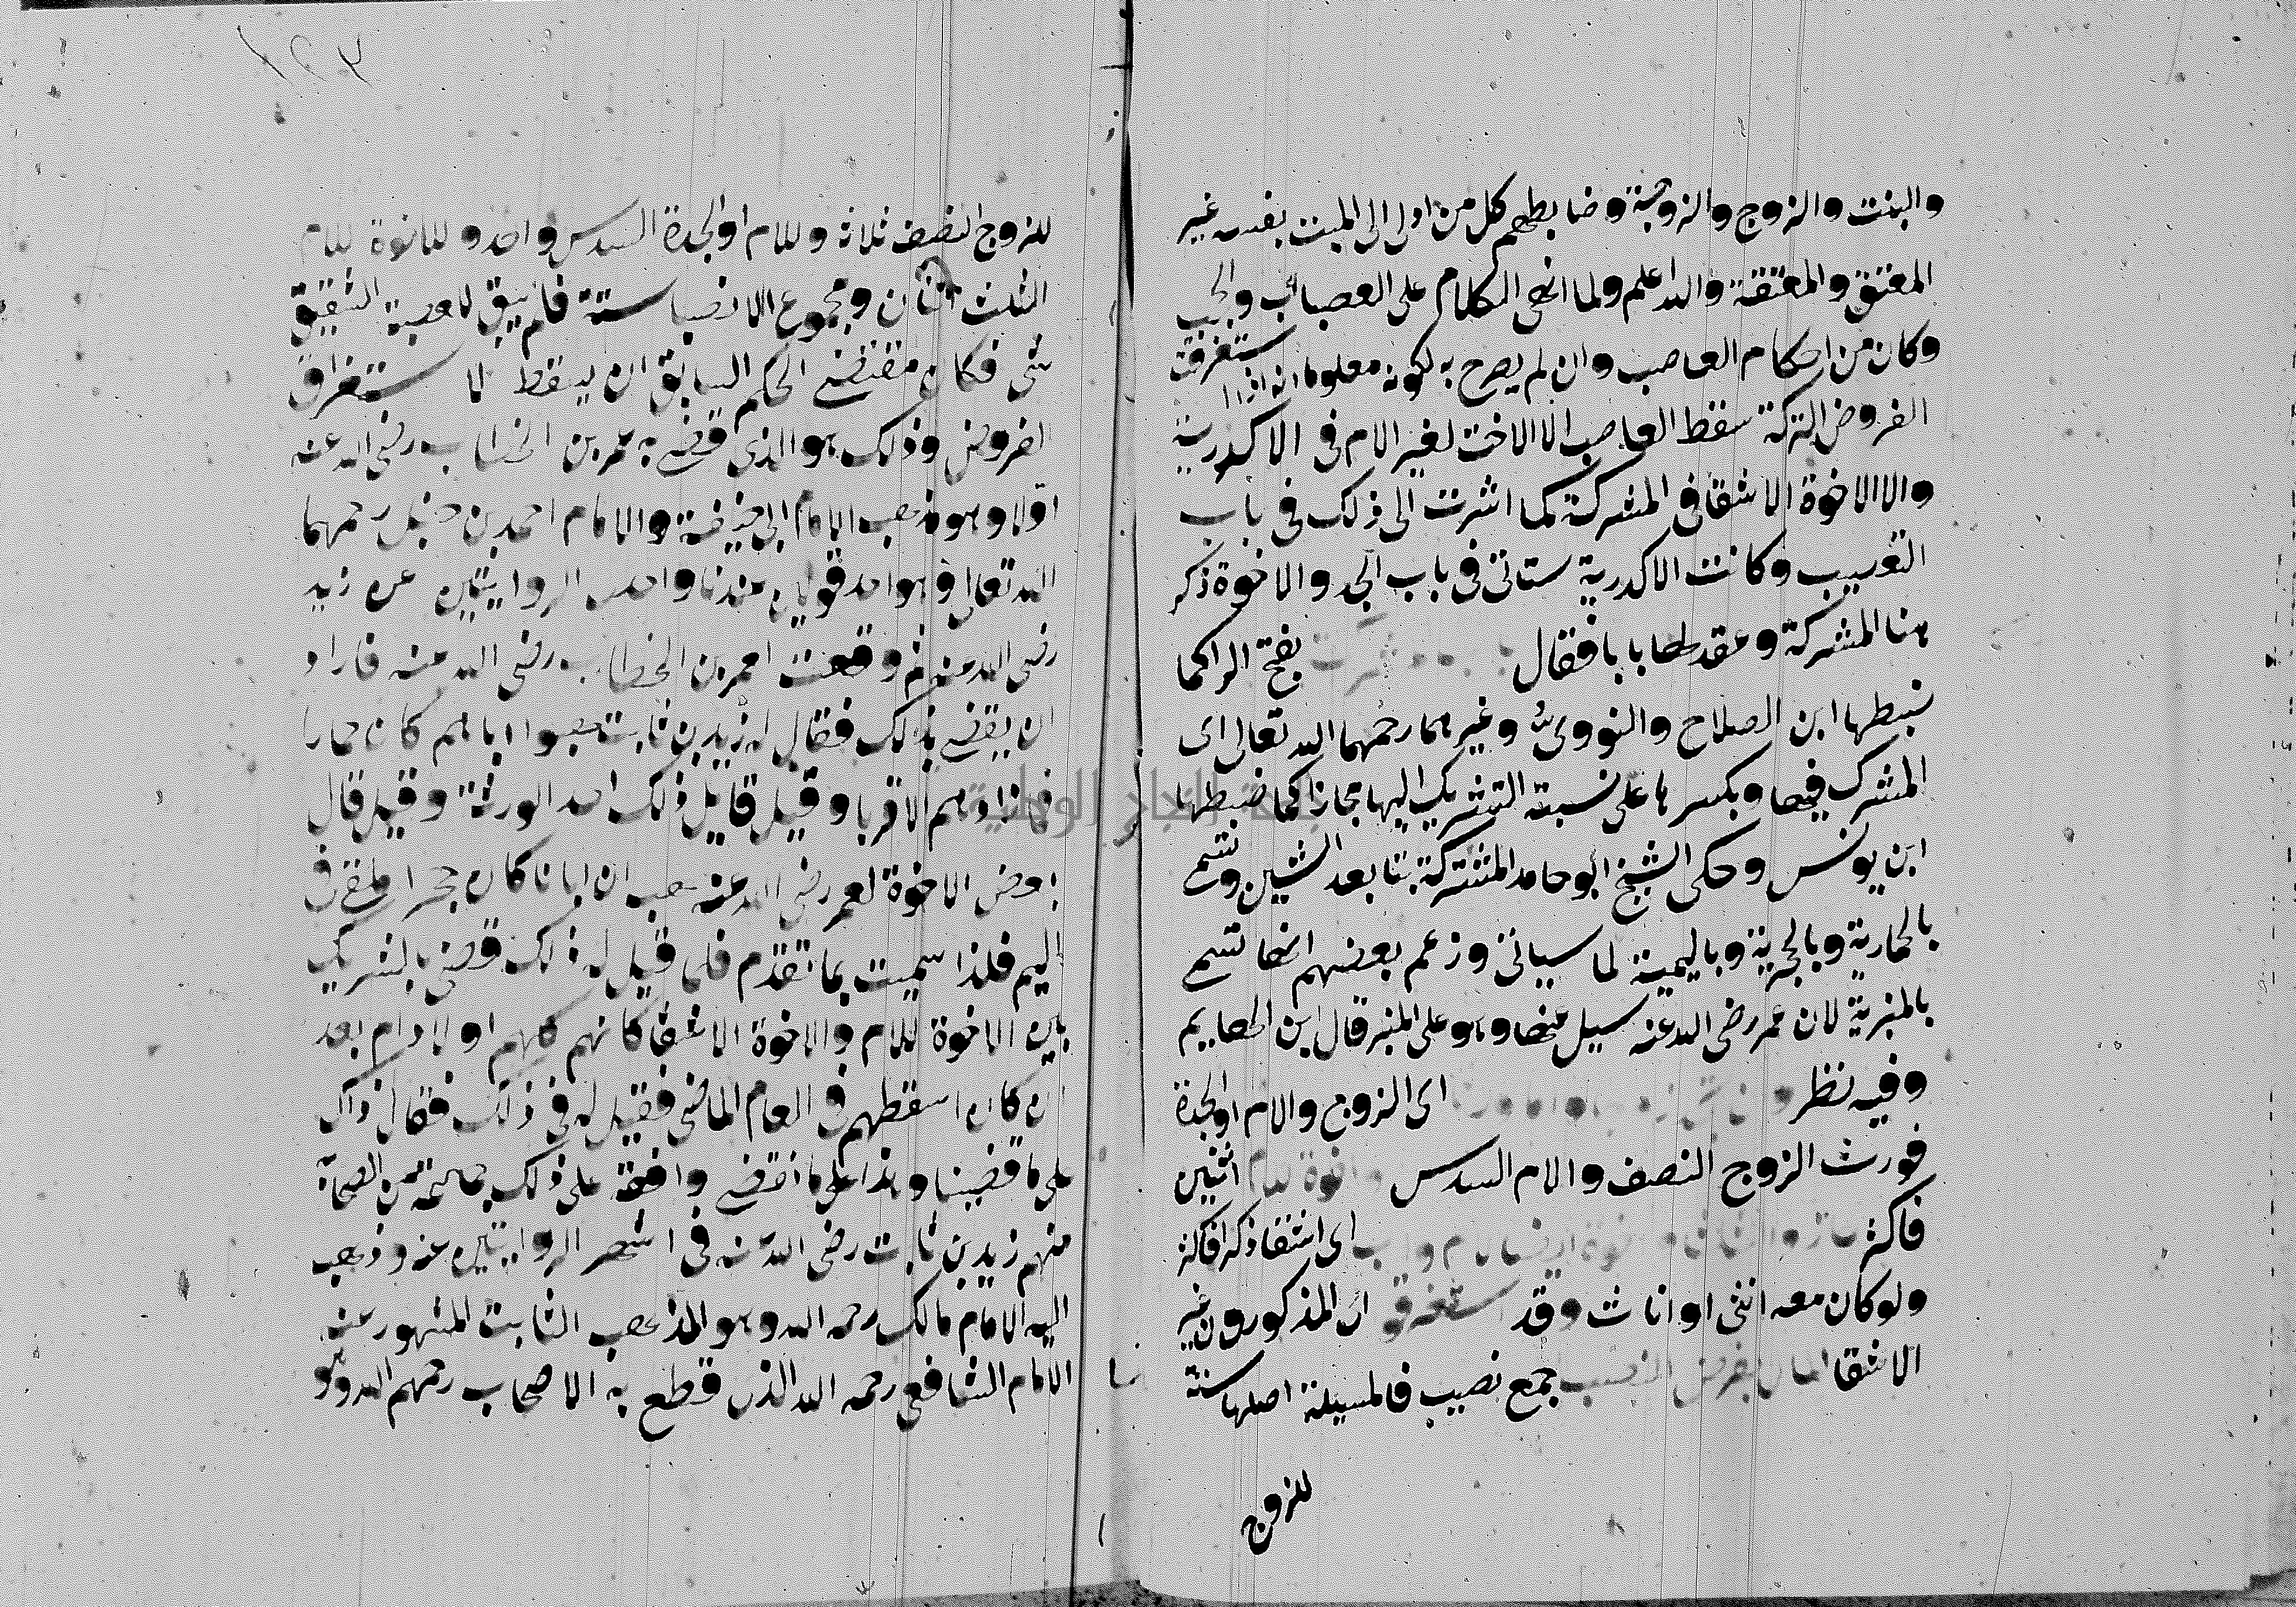 والبنت والزوج والزوجة وضابطهم كل من ادلى الى الميت بنفسه غير
المعتق والمعتقة والله اعلم ولما انهى الكلام على العصبات والحجب
وكان من احكام العاصب وان لم يصرح به لكونه معلوما انه اذا استغرقت
الفروض التركة سقط العاصب الا الاخت لغير الام في الاكدرية
والا الاخوة الاشقا في المشركة كما اشرت الى ذلك في باب
التعصيب وكانت الاكدرية ستاتى في باب الجد والاخوة ذكر
هنا المشركة وعقد لها بابا فقال بفتح الرا كما
ضبطها ابن الصلاح والنووي وغيرهما رحمهما الله تعالى اى
المشرك فيها وبكسرها على نسبة التشريك اليها مجازا كما ضبطها
ابن يونس وحكى الشيخ ابو حامد المشتركة بتا بعد الشين وتسمى
بالحمارية وبالحجرية وباليمية لما سياتى وزعم بعضهم انها تسمى
بالمنبرية لان عمر رضى الله عنه سيل عنها وهو على المنبر قال ابن الهايم
وفيه نظر اى الزوج والام او الجدة
فورث الزوج النصف والام السدس اخوة للام اثنين
فاكثر اى اشقا ذكرا فاكثر
ولو كان معه انثى او اناث وقد استغرقوا اى المذكورون غير
الاشقا المال بفرض النصب جمع نصيب فالمسيلة اصلها ستة
للزوج
١٢٣
للزوج النصف ثلاثة وللام او الجدة السدس واحد وللاخوة للام
الثلث اثنان ومجموع الانصبا ستة فلم يبق للعصبة الشقيق
شى فكان مقتضى الحكم السابق ان يسقط لاستغراق
الفروض وذلك هو الذى قضى به عمر بن الخطاب رضى الله عنه
اولا وهو مذهب الامام ابى حنيفة والامام احمد بن حنبل رحمهما
الله تعالى وهو احد قولين عندنا واحدى الروايتين عن زيد
رضى الله عنه ثم وقعت لعمر بن الخطاب رضى الله عنه فاراد
ان يقضى بذلك فقال له زيد بن ثابت هبوا اباهم كان حمارا
فما زادهم الاب الا قربا وقيل قايل ذلك احد الورثة وقيل قال
بعض الاخوة لعمر رضى الله عنه هب ان ابانا كان حجرا ملقى في
اليم فلذا سميت بما تقدم فلما قيل له ذلك قضى بالتشريك
بين الاخوة للام والاخوة الاشقا كانهم كلهم اولاد ام بعد
ان كان اسقطهم في العام الماضى فقيل له في ذلك فقال ذاك
على ما قضينا وهذا على ما نقضى وافقه على ذلك جماعة من الصحابة
منهم زيد بن ثابت رضى الله عنه في اشهر الروايتين عنه وذهب
اليه الامام مالك رحمه الله وهو المذهب الثابت المشهور عند
الامام الشافعى رحمه الله الذى قطع به الاصحاب رحمهم الله وهو
جامعة النجاح الوطنية